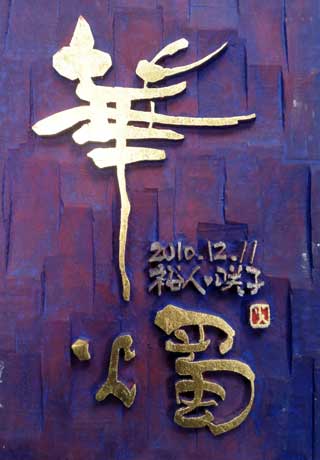 華燭
2010.12.11
裕人 咲子